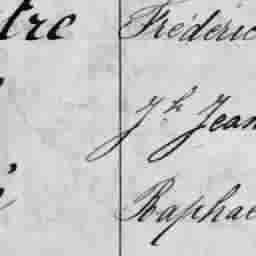 tre Frédéric
Jh Jean
Raphae